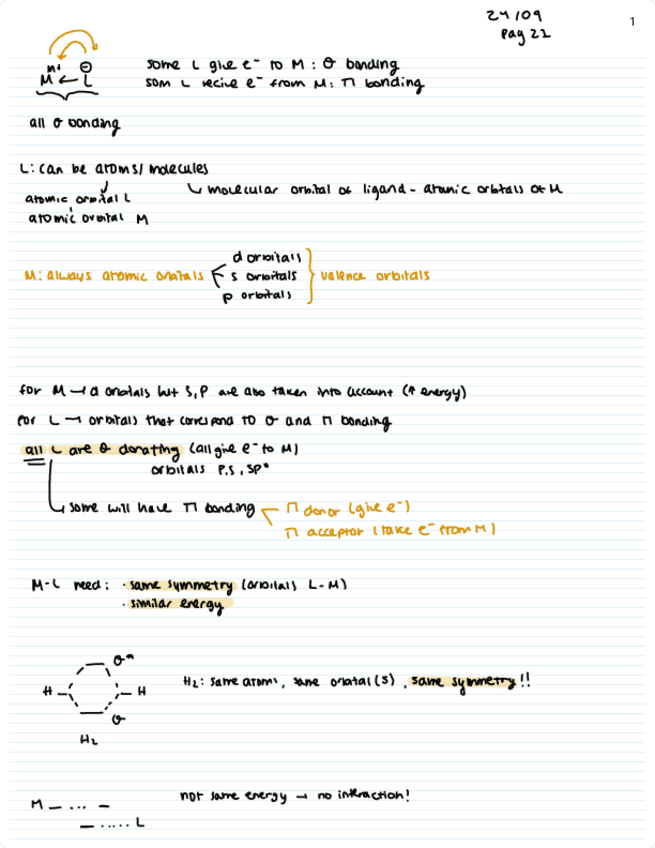 24/09
1
pag 22
Mⁿ⁺ ← L ⊖
some L give e⁻ to M : σ bonding
som L recive e⁻ from M: π bonding
all σ bonding
L: can be atoms/ molecules
↳ molecular orbital of ligand - atomic orbitals of M
atomic orbital L
atomic orbital M
d orbitals
M: always atomic orbitals s orbitals } valence orbitals
p orbitals
for M → d orbitals but s, p are also taken into account (↑ energy)
for L → orbitals that correspond to σ and π bonding
all L are σ donating (all give e⁻ to M)
orbitals p, s, sp*
↳ some will have π bonding π donor (give e⁻)
π acceptor (take e⁻ from M)
M-L need: · same symmetry (orbitals L-M)
· similar energy
σ*
H H
H₂: same atoms, same orbital (s), same symmetry!!
σ
H₂
not same energy → no interaction!
M — ... —
— ..... L